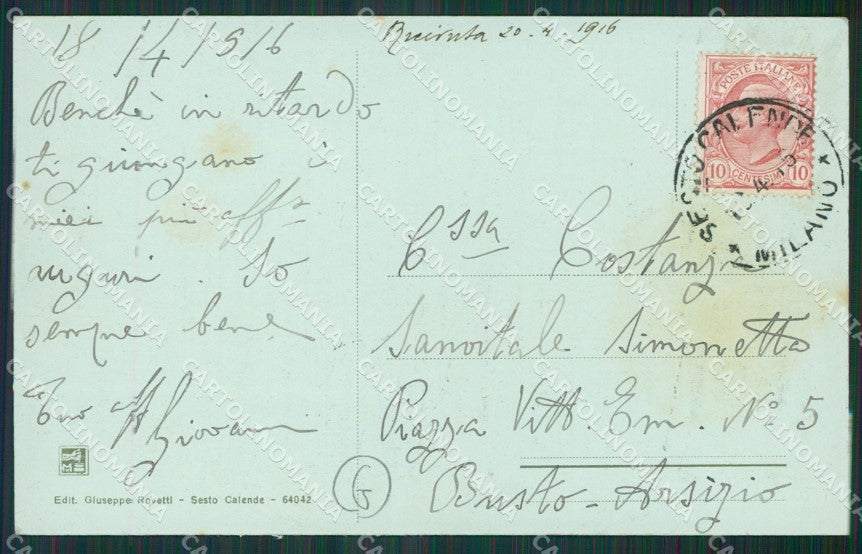 18/4/1916
Ricevuta 20-4-1916
Benchè in ritardo
ti giungano i
miei più aff.
auguri. Io
sempre bene
Tuo aff Giovanni
POSTE ITALIANE
10 CENTESIMI 10
SESTO CALENDE
MILANO
C.ssa Costanza
Simonetta
Piazza Vitt. Em. N.º 5
Busto-Arsizio
G
Edit. Giuseppe Rovetti - Sesto Calende - 64042
CARTOLINOMANIA